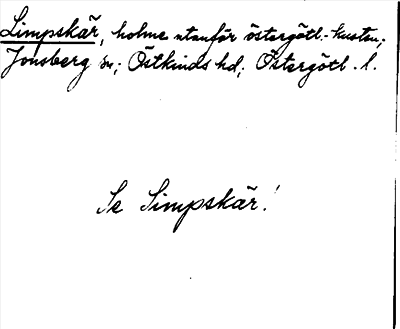 Limpskär, holme utanför östergötl.-kusten;
Jonsberg sn; Östkinds hd; Östergötl. l.
Se Simpskär!